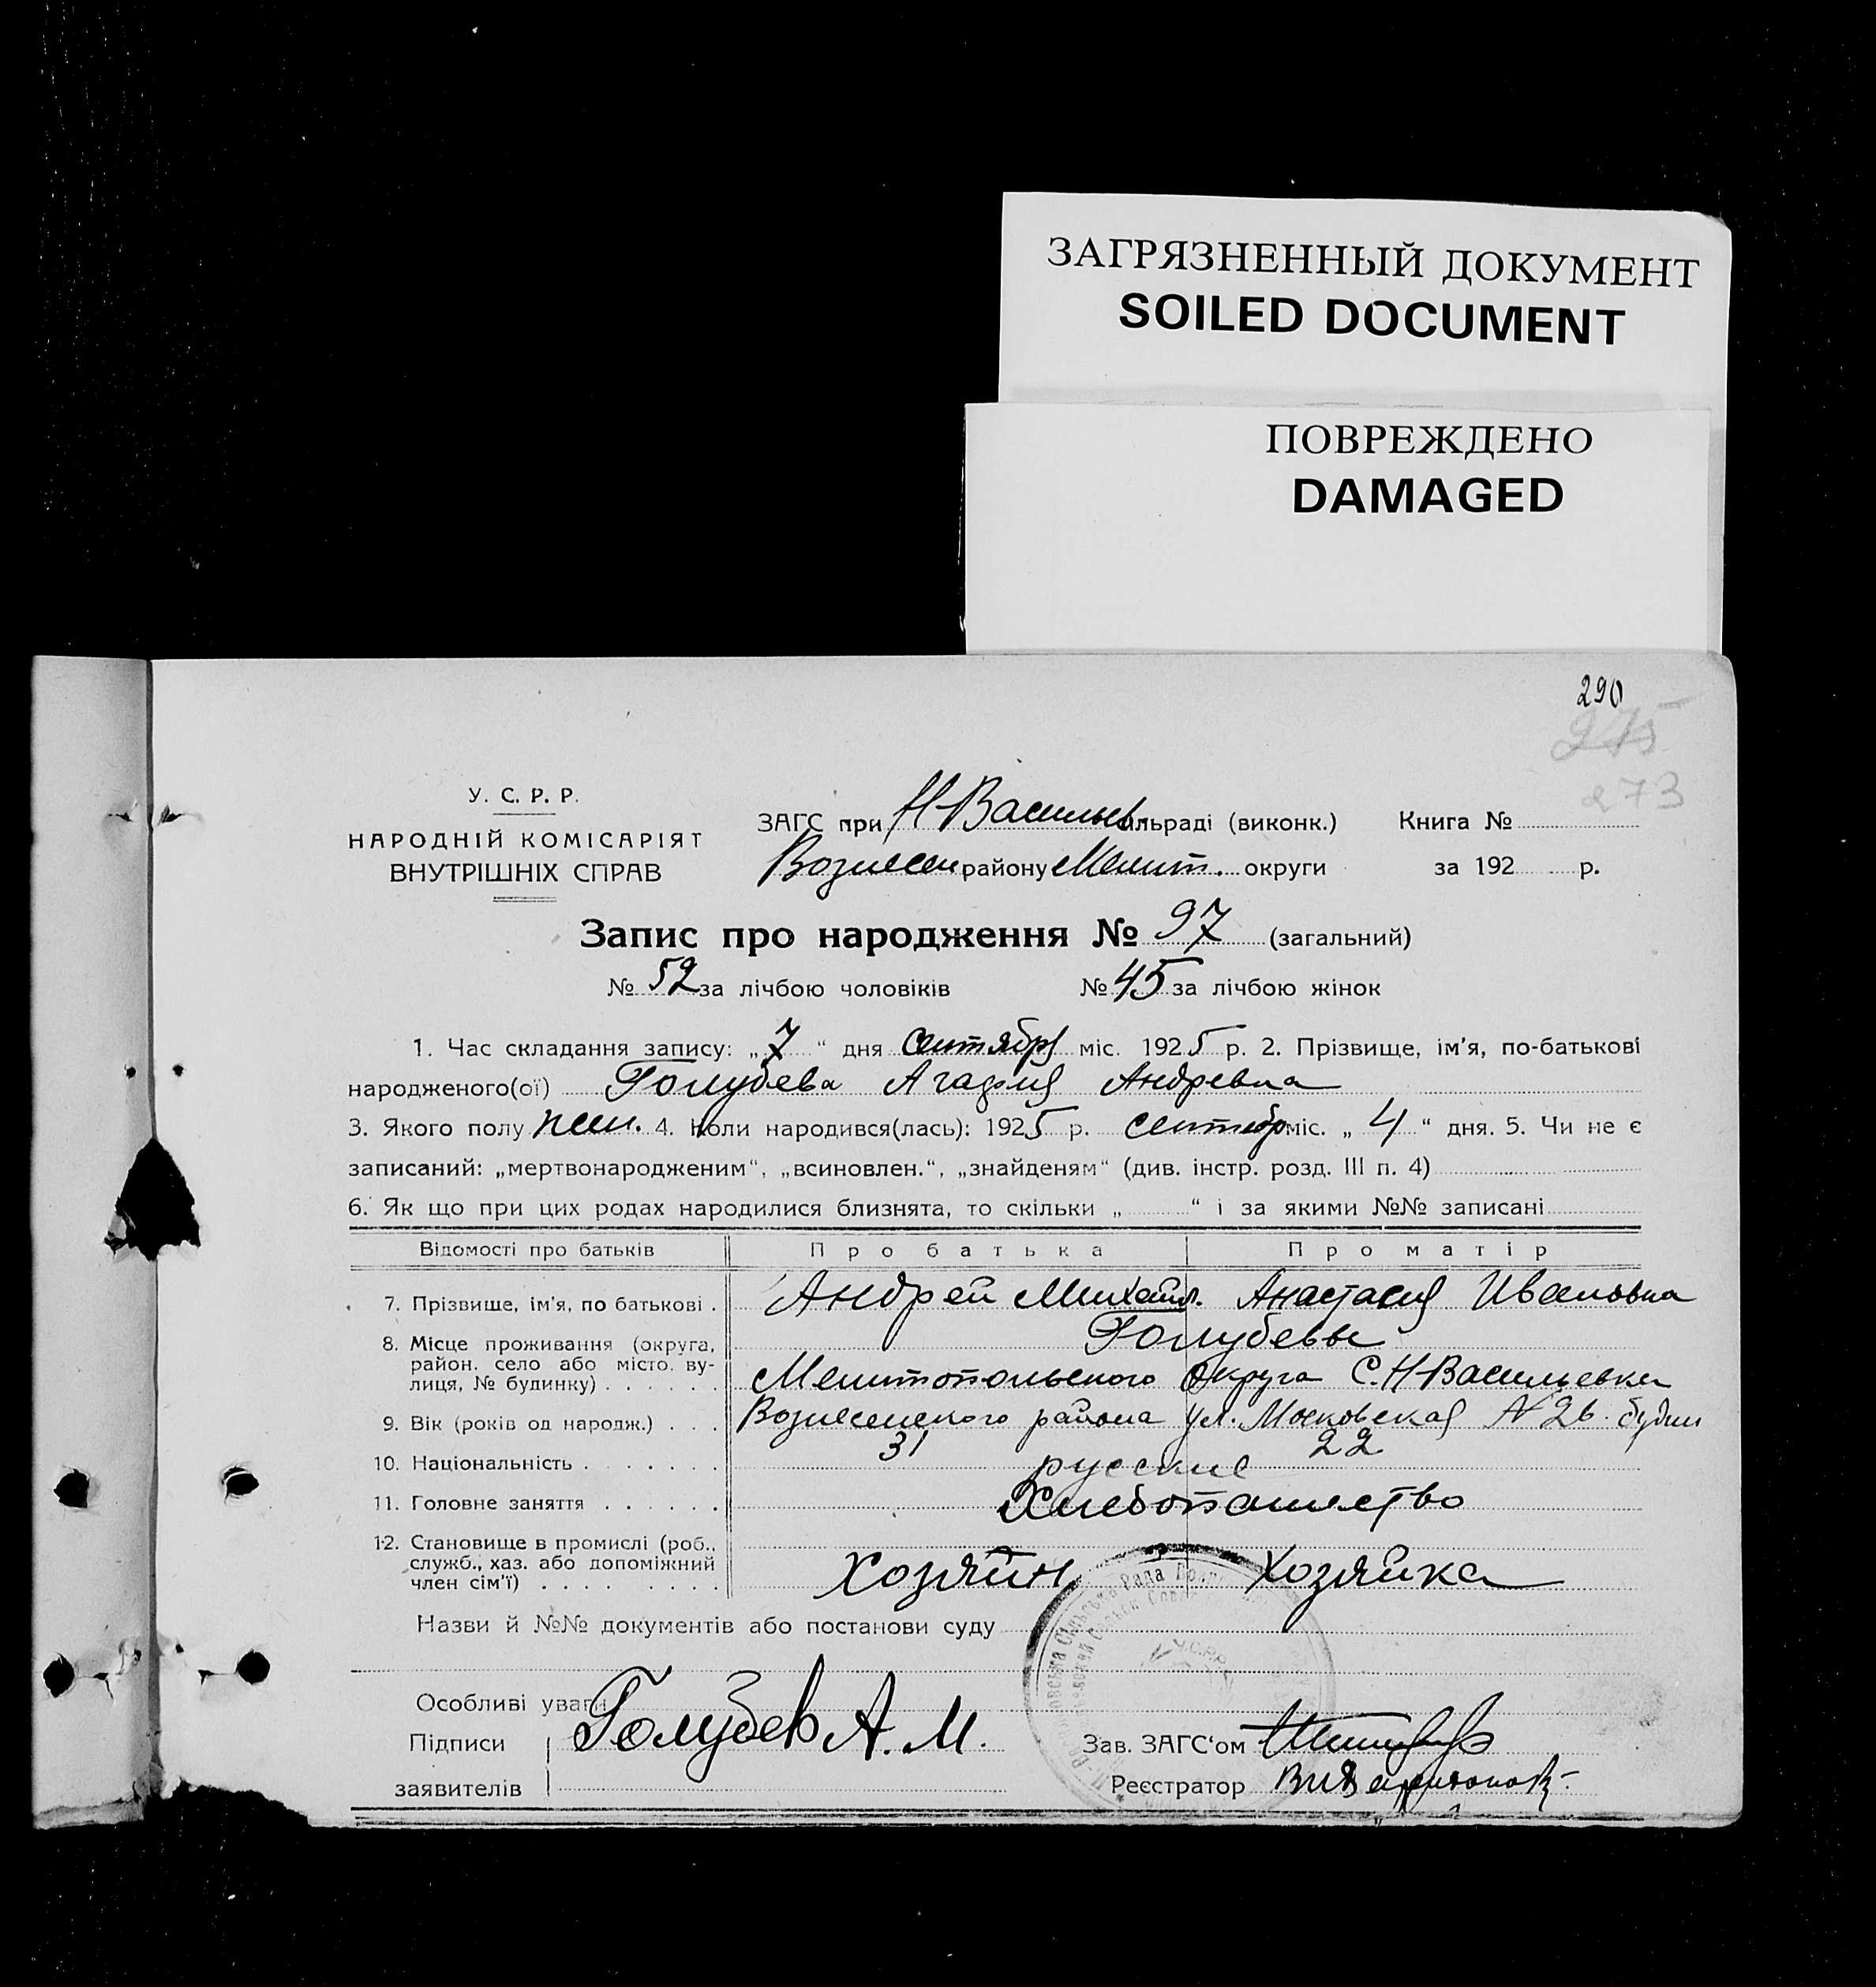 ЗАГРЯЗНЕННЫЙ ДОКУМЕНТ
SOILED DOCUMENT
ПОВРЕЖДЕНО
DAMAGED
290
275
273
У. С. Р. Р.
НАРОДНІЙ КОМІСАРІЯТ
ВНУТРІШНІХ СПРАВ
ЗАГС при Н-Васильев. сільраді (виконк.) Книга №
Вознесен району Мелит. округи за 192 р.
Запис про народження № 97 (загальний)
№ 52 за лічбою чоловіків № 45 за лічбою жінок
1. Час складання запису: „ 7 “ дня сентября міс. 1925 р. 2. Прізвище, ім’я, по-батькові
народженого(ої) Голубева Агафия Андревна
3. Якого полу жен. 4. Коли народився(лась): 1925 р. сентябр міс. „ 4 “ дня. 5. Чи не є
записаний: „мертвонародженим“, „всиновлен.“, „знайденям“ (див. інстр. розд. III п. 4)
6. Як що при цих родах народилися близнята, то скільки „ “ і за якими №№ записані
Відомості про батьків Про батька Про матір
7. Прізвище, ім’я, по батькові . Андрей Михайл. Анастасия Ивановна
Голубевы
8. Місце проживання (округа,
район. село або місто. ву-
лиця, № будинку) . . . . . . Мелитопольского Округа С. Н-Васильевка
9. Вік (років од народж.) . . . Вознесенского района ул. Московская № 26. будин
31 22
10. Національність . . . . . . . русские
11. Головне заняття . . . . . . Хлебопашество
12. Становище в промислі (роб.,
служб., хаз. або допоміжний
член сім’ї) . . . . . . . . Хозяйн Хозяйка
Назви й №№ документів або постанови суду
У.С.Р.Р.
Особливі уваги
Підписи Голубев А. М. Зав. ЗАГС‘ом
заявителів Реєстратор